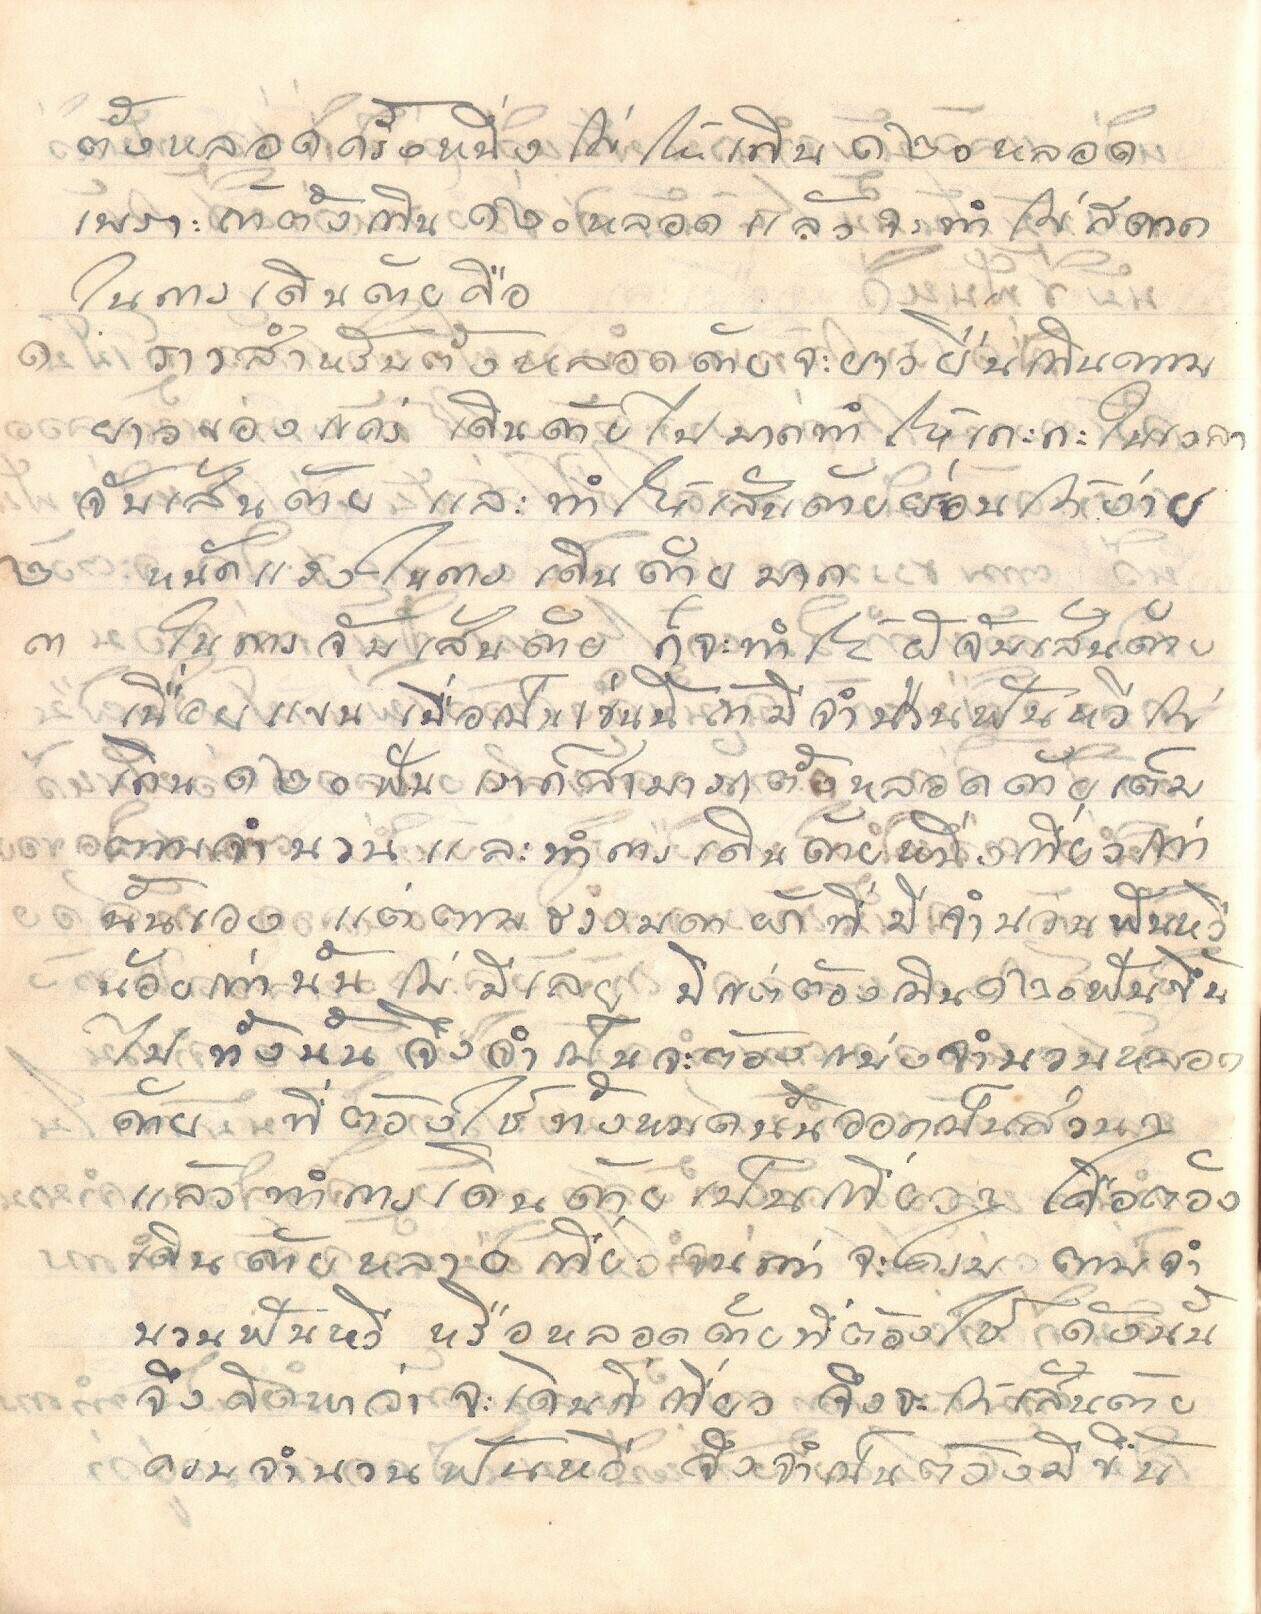 ตั้งหลอดครั้งหนึ่ง ไม่ให้เกิน ๑๒๐ หลอด
เพราะถ้าตั้งเกิน ๑๒๐ หลอด แล้วจะทำไม่สดวก
ในการเดินด้ายคือ
๑ ราวสำหรับตั้งหลอดด้ายจะยาวยื่นเกินความ
ยาวของแคร่ เดินด้ายไปมากทำให้เกะกะในเวลา
จับเส้นด้าย และทำให้เส้นด้ายหย่อนได้ง่าย
๒ หนักแรงในการเดินด้ายมาก
๓ ในการจับเส้นด้าย ก็จะทำให้ผู้จับเส้นด้าย
เมื่อยแขน เมื่อเป็นเช่นนี้ ถ้ามีจำนวนฟันหวีไม่
เกิน ๑๒๐ ฟัน เราก็สามารถตั้งหลอดด้ายเต็ม
ตามจำนวน และทำการเดินด้ายหนึ่งเที่ยวเท่า
นั้นเอง แต่ตามธรรมดาผ้าที่มีจำนวนฟันหวี
น้อยเท่านั้นไม่มีเลย มีแต่ต้องเกิน ๑๒๐ ฟันขึ้น
ไปทั้งนั้น จึงจำเป็นจะต้องแบ่งจำนวนหลอด
ด้าย ที่ต้องใช้ทั้งหมดนั้นออกเป็นส่วนๆ
แล้วทำการเดินด้ายเป็นเที่ยวๆ คือต้อง
เดินด้ายหลายเที่ยว จนกว่าจะครบ ตามจำ
นวนฟันหวี หรือหลอดด้ายที่ต้องใช้ ดังนั้น
จึงคิดหาว่าจะเดินกี่เที่ยว จึงจะได้เส้นด้าย
ครบจำนวนฟันหวี จึงจำเป็นต้องมีขึ้น